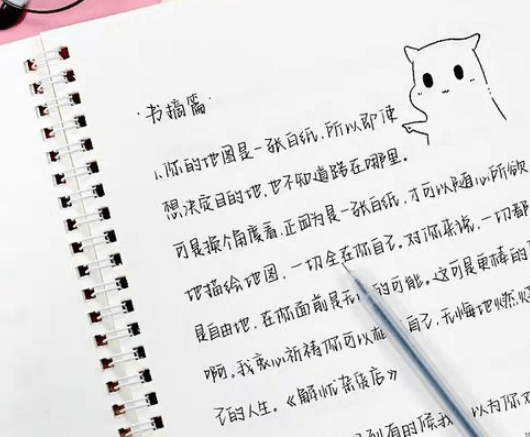 ·书摘篇·
1、你的地图是一张白纸，所以即使
想决定目的地，也不知道路在哪里。
可是换个角度看，正因为是一张白纸，才可以随心所欲
地描绘地图，一切全在你自己。对你来说，一切都
是自由地，在你面前是无 的可能。这可是更棒的
啊。我衷心祈祷你可以 自己，无悔地燃烧
己的人生。《解忧杂货店》
到有的候我 以为你